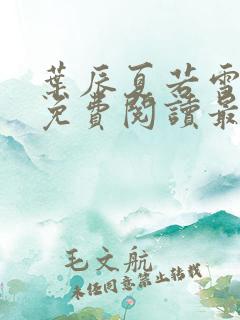 葉辰夏若雪
免費閱讀最
毛文航
未經同意禁止轉載